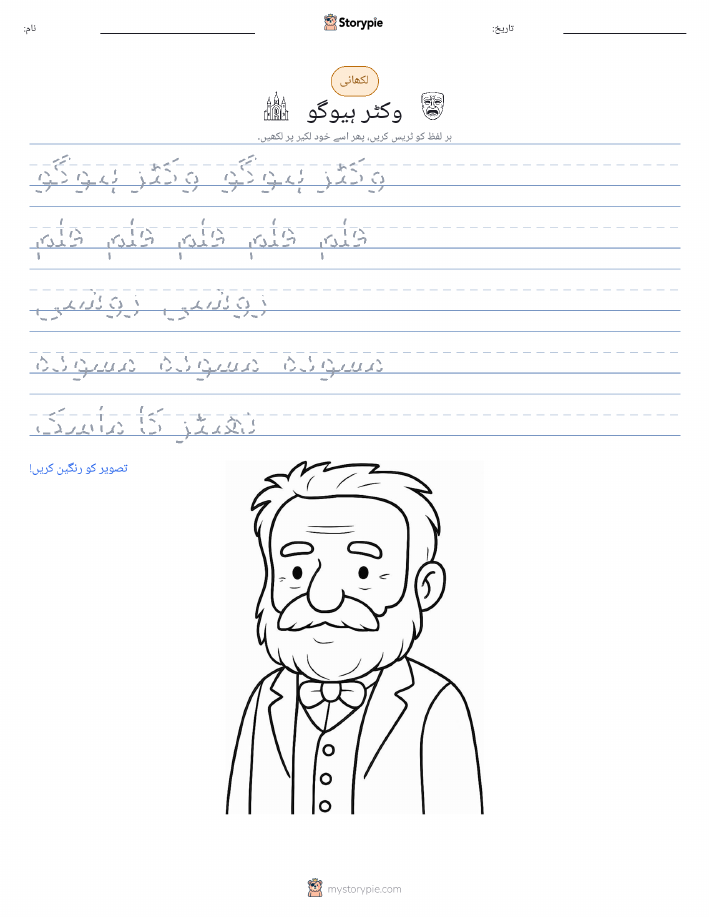 Storypie
نام:
تاریخ:
لکھائی
وکٹر ہیوگو
ہر لفظ کو ٹریس کریں، پھر اسے خود لکیر پر لکھیں۔
وکٹر ہیوگو وکٹر ہیوگو
قلم قلم قلم قلم قلم
رومانسی رومانسی
مسودہ مسودہ مسودہ
تھیٹر کا ماسک
تصویر کو رنگین کریں!
mystorypie.com